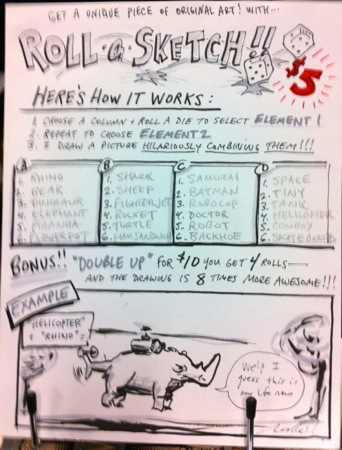 GET A UNIQUE PIECE OF ORIGINAL ART! WITH...
ROLL-a-SKETCH!!
$5
HERE'S HOW IT WORKS:
1. CHOOSE A COLUMN & ROLL A DIE TO SELECT ELEMENT 1.
2. REPEAT TO CHOOSE ELEMENT 2
3. I DRAW A PICTURE HILARIOUSLY COMBINING THEM!!!
A
1. RHINO
2. BEAR
3. DINOSAUR
4. ELEPHANT
5. PIRANHA
6. FLOWERPOT
B
1. SHARK
2. SHEEP
3. FIGHTERJET
4. ROCKET
5. TURTLE
6. HAM SANDWICH
C
1. SAMURAI
2. BATMAN
3. ROBOCOP
4. DOCTOR
5. ROBOT
6. BACKHOE
D
1. SPACE
2. TINY
3. TANK
4. HELICOPTER
5. COWBOY
6. SKATEBOARD
BONUS!! "DOUBLE UP" FOR $10 YOU GET 4 ROLLS—
AND THE DRAWING IS 8 TIMES MORE AWESOME!!!
EXAMPLE
"HELICOPTER"
+ "RHINO":
Well I
guess this is
my life now